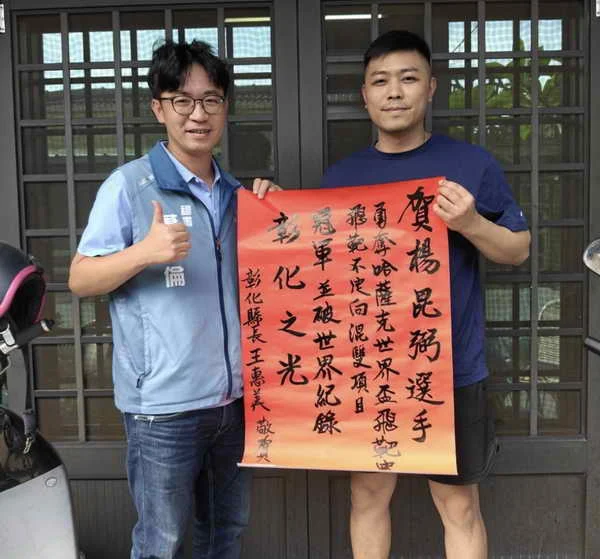 賀楊昆弼選手
勇奪哈薩克世界盃飛靶
飛靶不定向混雙項目
冠軍並破世界紀錄
彰化之光
彰化縣長 王惠美 敬賀
倫